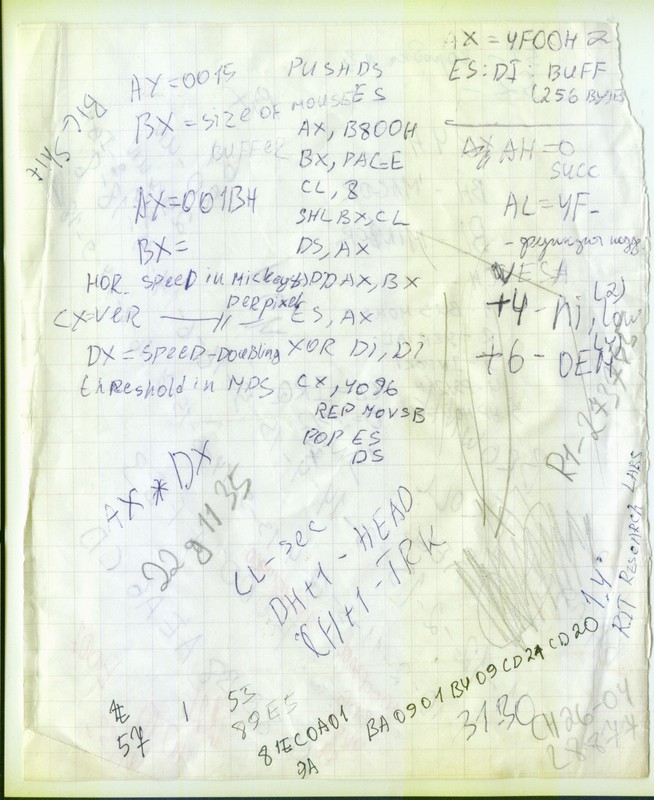 AX=0015
BX=SIZE OF MOUSE
BUFFER
AX=001BH
BX=
HOR. SPEED in Mickeys
per pixel
CX=VER —//—
DX=SPEED-DOUBLING
threshold in MPS
PUSH DS
ES
AX, B800H
BX, PAGE
CL, 8
SHL BX, CL
DS, AX
ADD AX, BX
ES, AX
XOR Di, Di
CX, 4096
REP MOVSB
POP ES
DS
AX=4F00H
ES:DI: BUFF
(256 BYTES
AH=0
SUCC
AL=4F-
-функция подд
VESA
+4 -
+6 - OEM
AX * DX
22 8 11 35
CL-sec
DH+1-HEAD
CH+1-TRK
RIT RESEARCH LABS
53
57
89E5
81EC0A01
BA0901B409CD21CD20
9A
3130